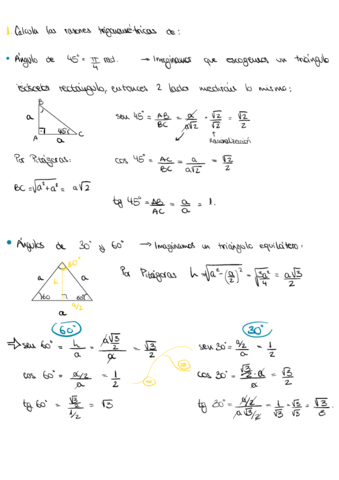 1. Calcula las razones trigonométricas de:
• Ángulo de 45° = π/4 rad. → Imaginamos que escogemos un triángulo
isósceles rectángulo, entonces 2 lados medirán lo mismo:
B
a
A 45° C
a
sen 45° = AB/BC = a/a√2 · √2/√2 = √2/2
Racionalización
Por Pitágoras:
cos 45° = AC/BC = a/a√2 = √2/2
BC = √a² + a² = a√2
tg 45° = AB/AC = a/a = 1.
• Ángulos de 30° y 60° → Imaginamos un triángulo equilátero.
60°
a h a
60 60°
a/2
a
Por Pitágoras h = √a² - (a/2)² = √3a²/4 = a√3/2
60° 30°
⇒ sen 60° = h/a = a√3/2/a = √3/2
sen 30° = a/2/a = 1/2
cos 60° = a/2/a = 1/2
cos 30° = √3/2·a/a = √3/2
tg 60° = √3/2/1/2 = √3
tg 30° = a/2/a√3/2 = 1/√3 · √3/√3 = √3/3